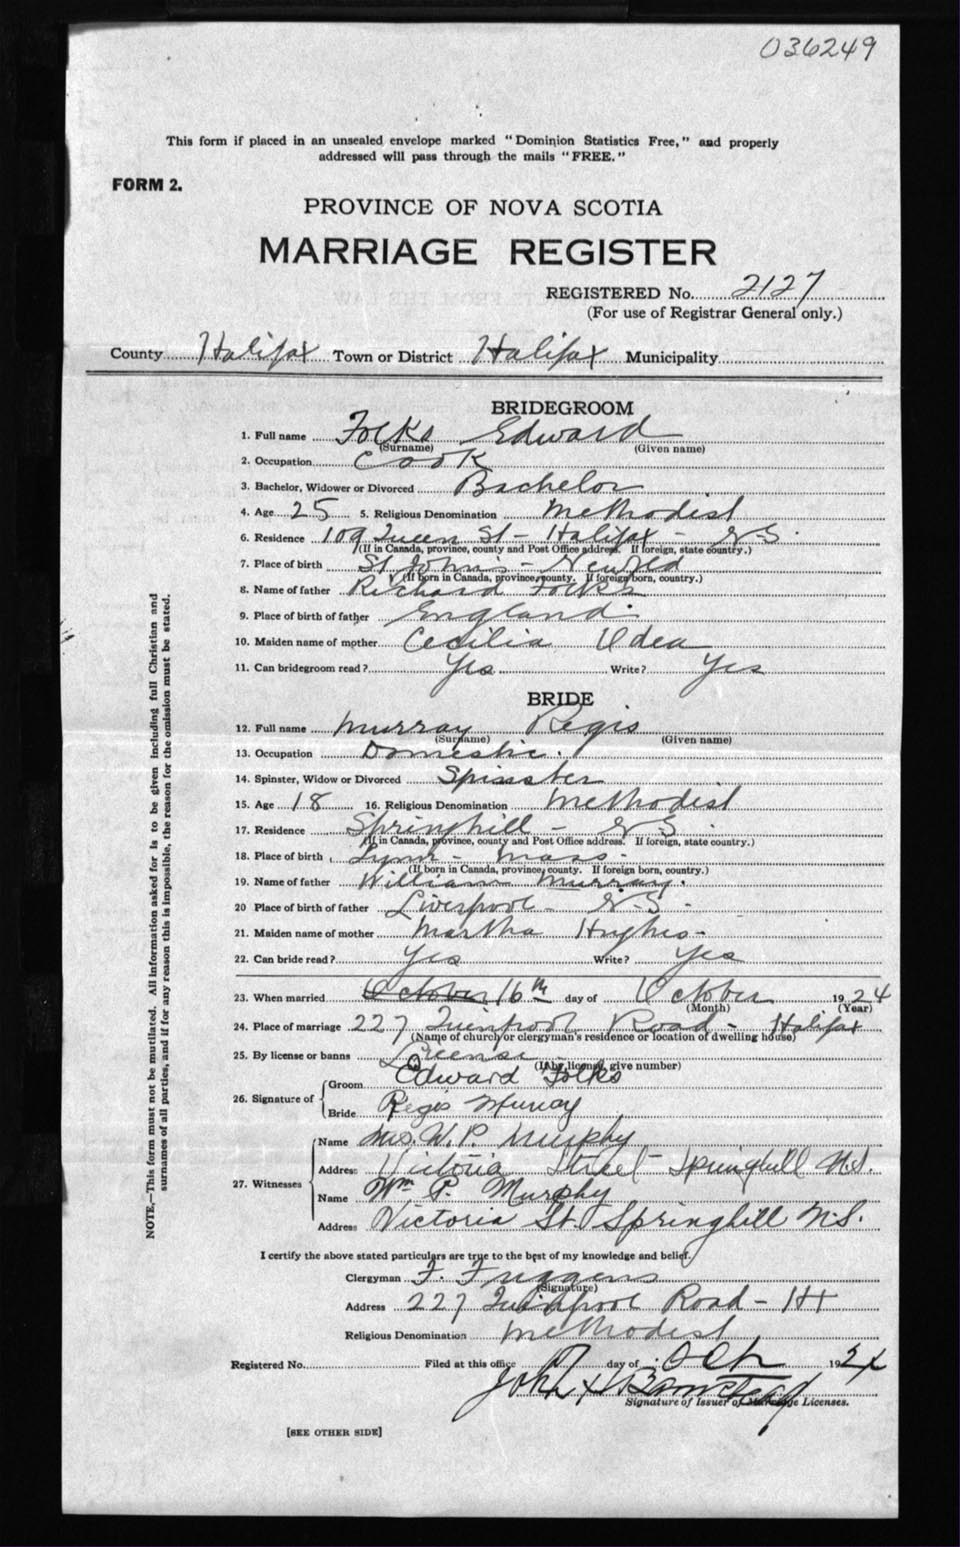 036249
This form if placed in an unsealed envelope marked "Dominion Statistics Free," and properly
addressed will pass through the mails "FREE."
FORM 2.
PROVINCE OF NOVA SCOTIA
MARRIAGE REGISTER
REGISTERED No. 2127
(For use of Registrar General only.)
County Halifax Town or District Halifax Municipality
BRIDEGROOM
1. Full name Folks Edward
(Surname) (Given name)
2. Occupation Cook
3. Bachelor, Widower or Divorced Bachelor
4. Age 25 5. Religious Denomination Methodist
6. Residence 109 Queen St - Halifax - N-S.
(If in Canada, province, county and Post Office address. If foreign, state country.)
7. Place of birth St Johns - Newfld
(If born in Canada, province, county. If foreign born, country.)
8. Name of father Richard Folks
9. Place of birth of father England.
10. Maiden name of mother Cecilia Odea
11. Can bridegroom read? Yes Write? Yes
BRIDE
12. Full name Murray Regis
(Surname) (Given name)
13. Occupation Domestic.
14. Spinster, Widow or Divorced Spinster
15. Age 18 16. Religious Denomination Methodist
17. Residence Springhill - N-S.
(If in Canada, province, county and Post Office address. If foreign, state country.)
18. Place of birth Lynn - Mass -
(If born in Canada, province, county. If foreign born, country.)
19. Name of father William Murray.
20 Place of birth of father Liverpool - N-S -
21. Maiden name of mother Martha Hughes -
22. Can bride read? Yes Write? Yes
23. When married October 16th day of October 1924
(Month) (Year)
24. Place of marriage 227 Quinpool Road - Halifax
(Name of church or clergyman's residence or location of dwelling house)
25. By license or banns License
(If by license, give number)
26. Signature of Groom Edward Folks
Bride Regis Murray
27. Witnesses Name Mrs. W. P. Murphy
Address Victoria Street Springhill N.S.
Name Wm P. Murphy
Address Victoria St. Springhill N.S.
I certify the above stated particulars are true to the best of my knowledge and belief.
Clergyman F. Friggens
(Signature)
Address 227 Quinpool Road - Hx
Religious Denomination Methodist
Registered No. Filed at this office 17 day of Oct 1924
John
Signature of Issuer of Marriage Licenses.
[SEE OTHER SIDE]
NOTE,—This form must not be mutilated. All information asked for is to be given including full Christian and
surnames of all parties, and if for any reason this is impossible, the reason for the omission must be stated.